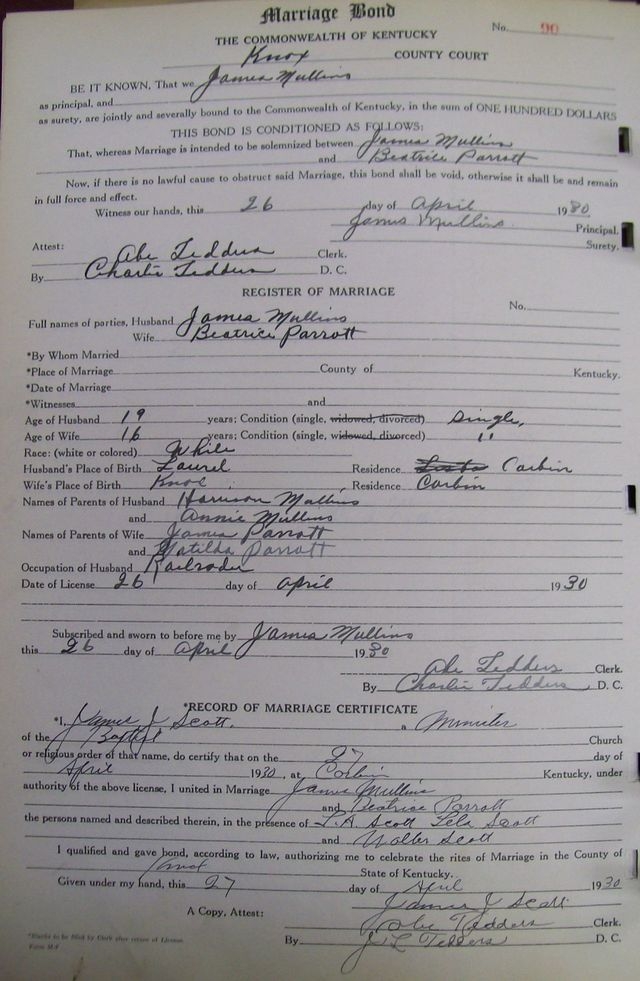 Marriage Bond
No. 90
THE COMMONWEALTH OF KENTUCKY
Knox COUNTY COURT
BE IT KNOWN, That we James Mullins
as principal, and
as surety, are jointly and severally bound to the Commonwealth of Kentucky, in the sum of ONE HUNDRED DOLLARS
THIS BOND IS CONDITIONED AS FOLLOWS:
That, whereas Marriage is intended to be solemnized between James Mullins
and Beatrice Parrott
Now, if there is no lawful cause to obstruct said Marriage, this bond shall be void, otherwise it shall be and remain
in full force and effect.
Witness our hands, this 26 day of April 1930
James Mullins Principal.
Surety.
Attest: Abe Tedders Clerk.
By Charlie Tedders D. C.
REGISTER OF MARRIAGE
No.
Full names of parties, Husband James Mullins
Wife Beatrice Parrott
*By Whom Married
*Place of Marriage County of Kentucky.
*Date of Marriage
*Witnesses and
Age of Husband 19 years; Condition (single, widowed, divorced) Single,
Age of Wife 16 years; Condition (single, widowed, divorced) "
Race: (white or colored) While
Husband's Place of Birth Laurel Residence Corbin
Wife's Place of Birth Knox Residence Corbin
Names of Parents of Husband Harrison Mullins
and Annie Mullins
Names of Parents of Wife James Parrott
and Matilda Parrott
Occupation of Husband Railroader
Date of License 26 day of April 1930
Subscribed and sworn to before me by James Mullins
this 26 day of April 1930
Abe Tedders Clerk.
By Charlie Tedders D. C.
*RECORD OF MARRIAGE CERTIFICATE
*I, James J Scott, a Minister
of the Baptist Church
or religious order of that name, do certify that on the 27 day of
April 1930, at Corbin Kentucky, under
authority of the above license, I united in Marriage James Mullins
and Beatrice Parrott
the persons named and described therein, in the presence of L. A. Scott Lela Scott
and Walter Scott
I qualified and gave bond, according to law, authorizing me to celebrate the rites of Marriage in the County of
Knox State of Kentucky.
Given under my hand, this 27 day of April 1930
James J Scott
A Copy, Attest: Abe Tedders Clerk.
By J L Tedders D. C.
*Blanks to be filled by Clerk after return of License.
Form M-F